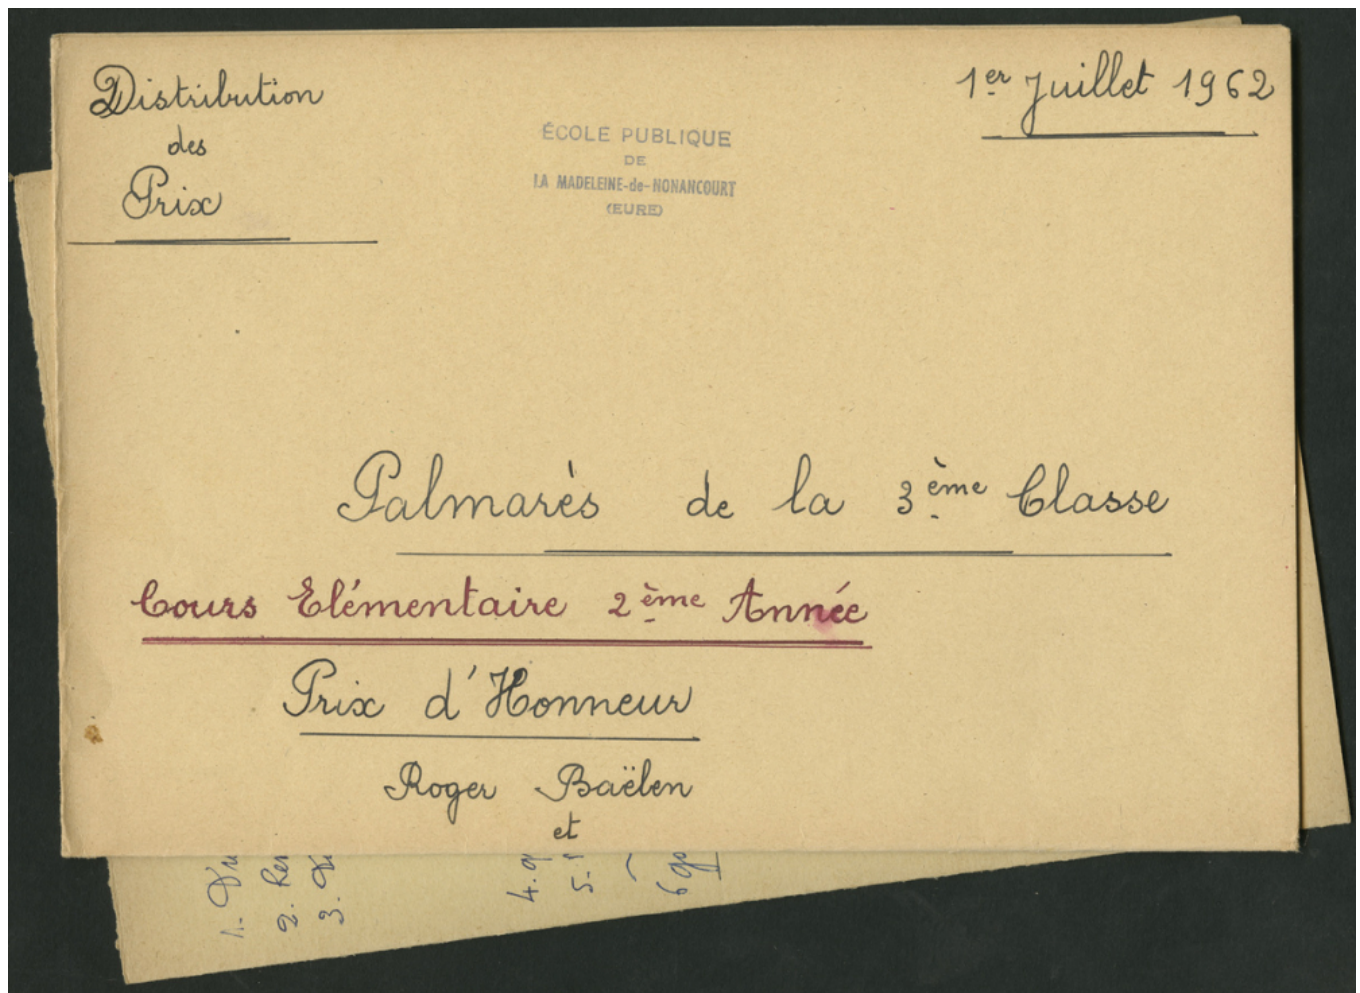 Distribution
des
Prix
1er Juillet 1962
ÉCOLE PUBLIQUE
DE
LA MADELEINE-de-NONANCOURT
(EURE)
Palmarès de la 3ème Classe
Cours Elémentaire 2ème Année
Prix d'Honneur
Roger Baëlen
et
1.
2.
3.
4.
5.
6